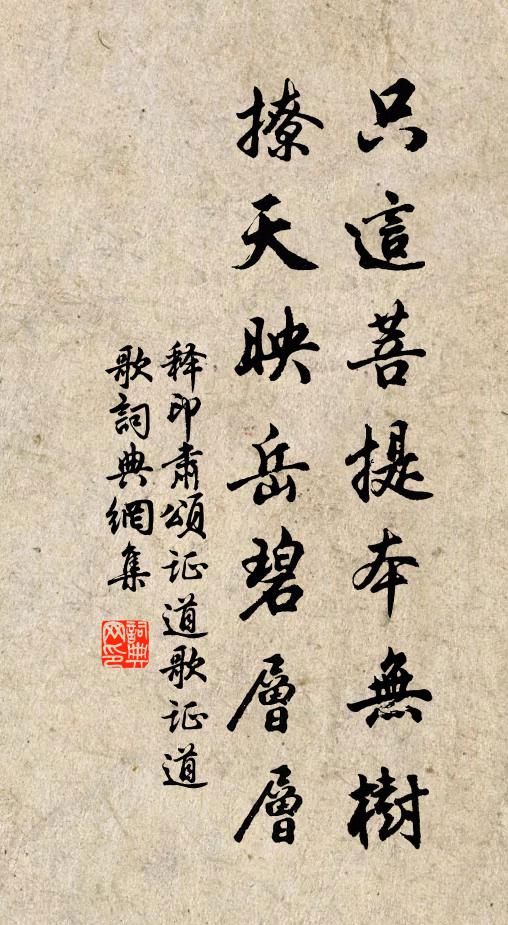 只這菩提本無樹
撩天映岳碧層層
释印肅頌证道歌证道
歌詞典網集
詞典
网印